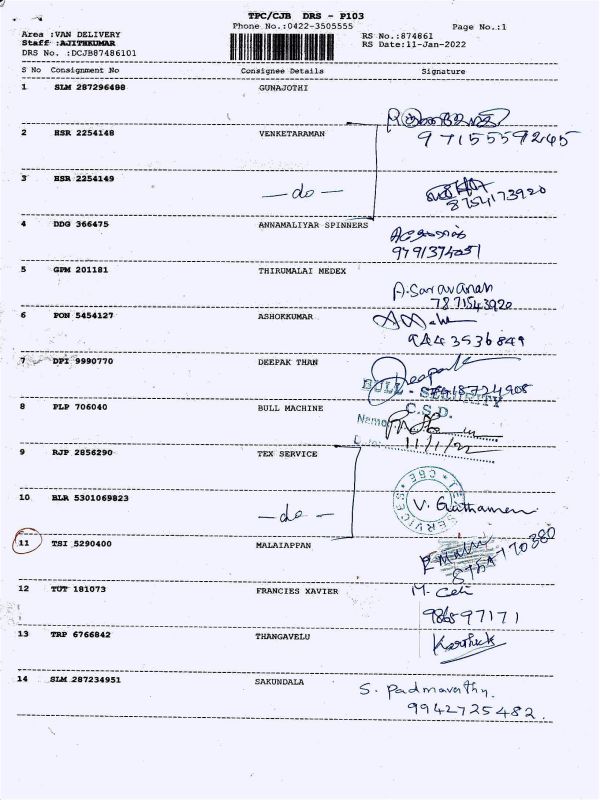 TPC/CJB DRS - P103
Phone No.:0422-3505555
Page No.:1
Area :VAN DELIVERY
RS No.:874861
Staff :AJITHKUMAR
RS Date:11-Jan-2022
DRS No. :DCJB87486101
S No Consignment No Consignee Details Signature
1 SLM 287296488 GUNAJOTHI
9715559245
2 HSR 2254148 VENKETARAMAN
3 HSR 2254149 -do-
8754173920
4 DDG 366475 ANNAMALIYAR SPINNERS
9791374051
5 GPM 201181 THIRUMALAI MEDEX
A.Saravanan
7871543920
6 PON 5454127 ASHOKKUMAR
9443536849
7 DPI 9990770 DEEPAK THAN
Deepak
BULL - SECURITY
8 PLP 706040 BULL MACHINE
C.S.D.
Name
Date: 11/1/22
9 RJP 2856290 TEX SERVICE
TEX SERVICES CBE
10 BLR 5301069823 -do-
11 TSI 5290400 MALAIAPPAN
12 TUT 181073 FRANCIES XAVIER
13 TRP 6766842 THANGAVELU
Karthick
14 SLM 287234951 SAKUNDALA
S. Padmavathy.
9942725482.